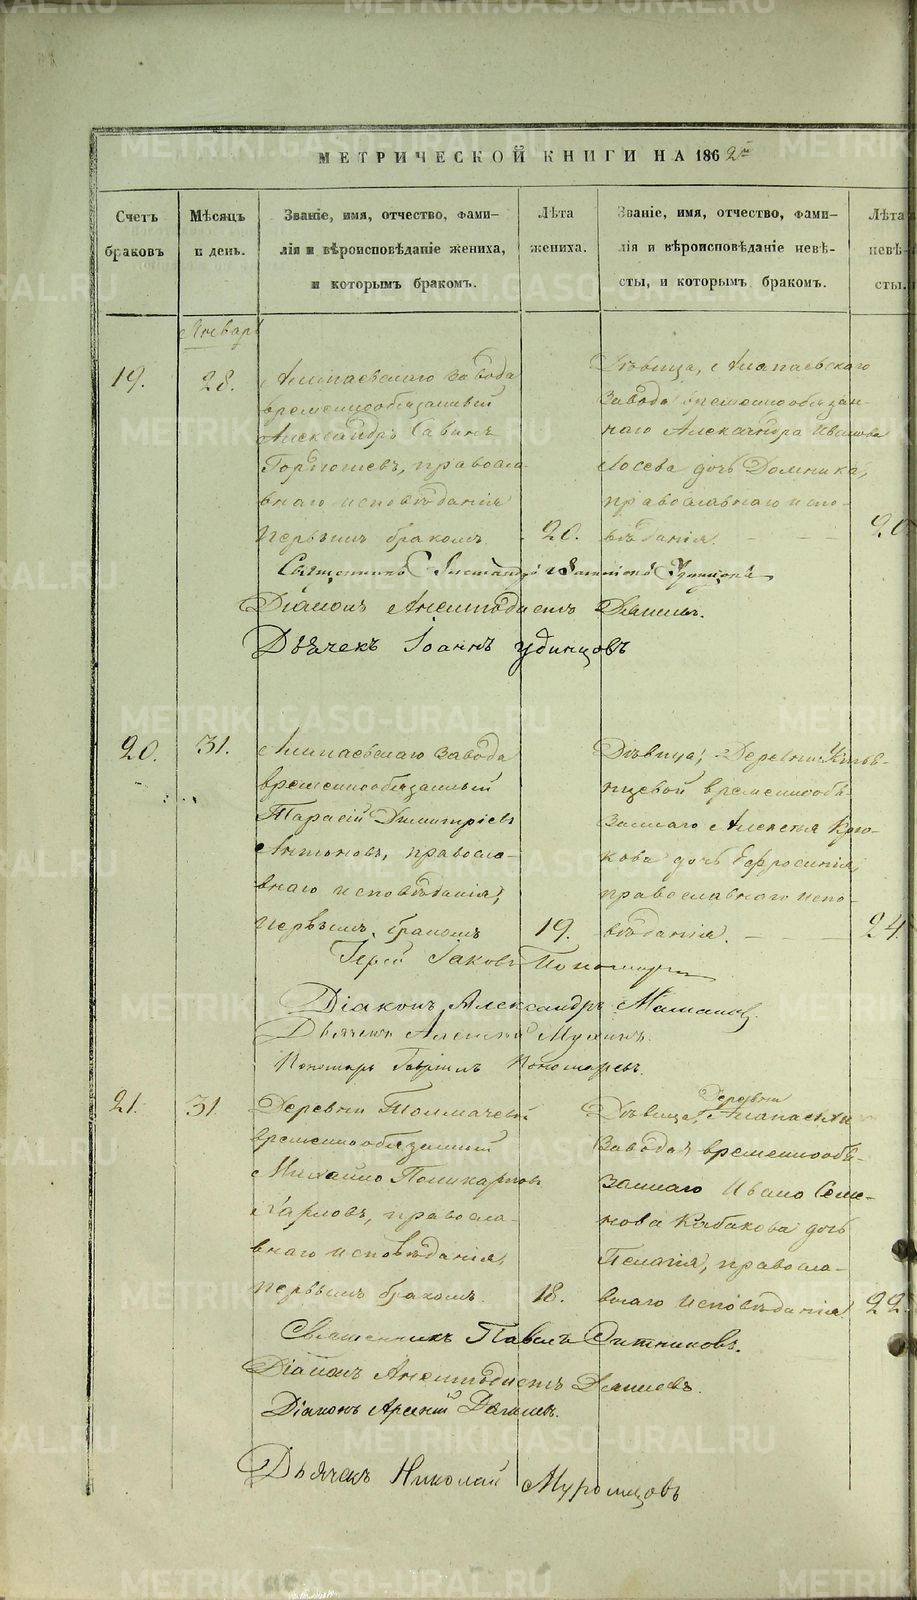 МЕТРИЧЕСКОЙ КНИГИ НА 1862й
Счетъ браковъ
Мѣсяцъ и день.
Званіе, имя, отчество, фами-
лія и вѣроисповѣданіе жениха,
и которымъ бракомъ.
Лѣта жениха.
Званіе, имя, отчество, фами-
лія и вѣроисповѣданіе невѣ-
сты, и которымъ бракомъ.
Лѣта невѣ-
сты.
Январь
19.
28.
Алапаевскаго завода
временнообязанный
Александръ Савинъ
православ-
наго исповѣданія
первымъ бракомъ
20.
Дѣвица, Алапаевскаго
завода временнообязан-
наго Александра Иванова
Лосева дочь Домника,
православнаго испо-
вѣданія.
20
Священникъ
Діаконъ
Дьячекъ Іоаннъ Удинцовъ
20.
31.
Алапаевскаго завода
временнообязанный
Тарасій Димитріевъ
Антоновъ, правосла-
внаго исповѣданія,
первымъ бракомъ
19.
Дѣвица, Деревни
временнообя-
заннаго Алексѣя
дочь Ефросинія,
православнаго испо-
вѣданія.
24.
Іерей Іаковъ Пономаревъ
Діаконъ Александръ
Дьячекъ Алексѣй Мухинъ.
Пономарь Гавріилъ Пономаревъ.
21.
31.
Деревни Толмачевой
временнообязанный
Михайло Поликарповъ
Карповъ, правосла-
внаго исповѣданія,
первымъ бракомъ.
18.
Деревни
Дѣвица, Алапаевскаго
завода временнообя-
заннаго Ивана Семе-
нова Кабакова дочь
Пелагія, правосла-
внаго исповѣданія
22
Священникъ Павелъ Ситниковъ.
Діаконъ
Діаконъ Арсеній
Дьячекъ Николай Муромцовъ
METRIKI.GASO-URAL.RU